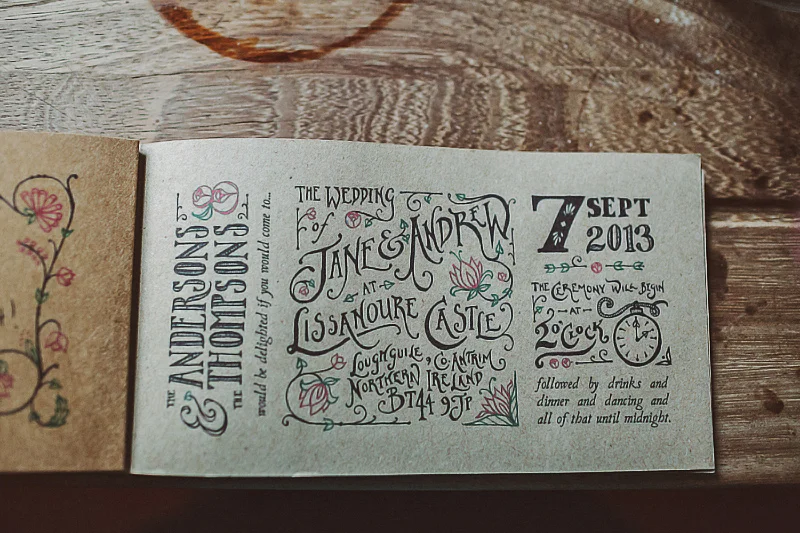 THE ANDERSONS
& THE THOMPSONS
would be delighted if you would come to...
THE WEDDING
of
JANE & ANDREW
AT
LISSANOURE CASTLE
LOUGHGUILE, Co ANTRIM
NORTHERN IRELAND
BT44 9JP
7 SEPT
2013
THE CEREMONY WILL BEGIN
AT
2 O'CLOCK
followed by drinks and
dinner and dancing and
all of that until midnight.